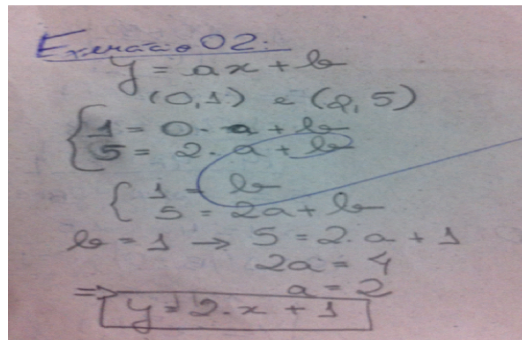 Exercício 02:
y = ax + b
(0,1) e (2,5)
1 = 0. a + b
5 = 2. a + b
1 = b
5 = 2a + b
b = 1 → 5 = 2. a + 1
2a = 4
a = 2
⇒ y = 2. x + 1